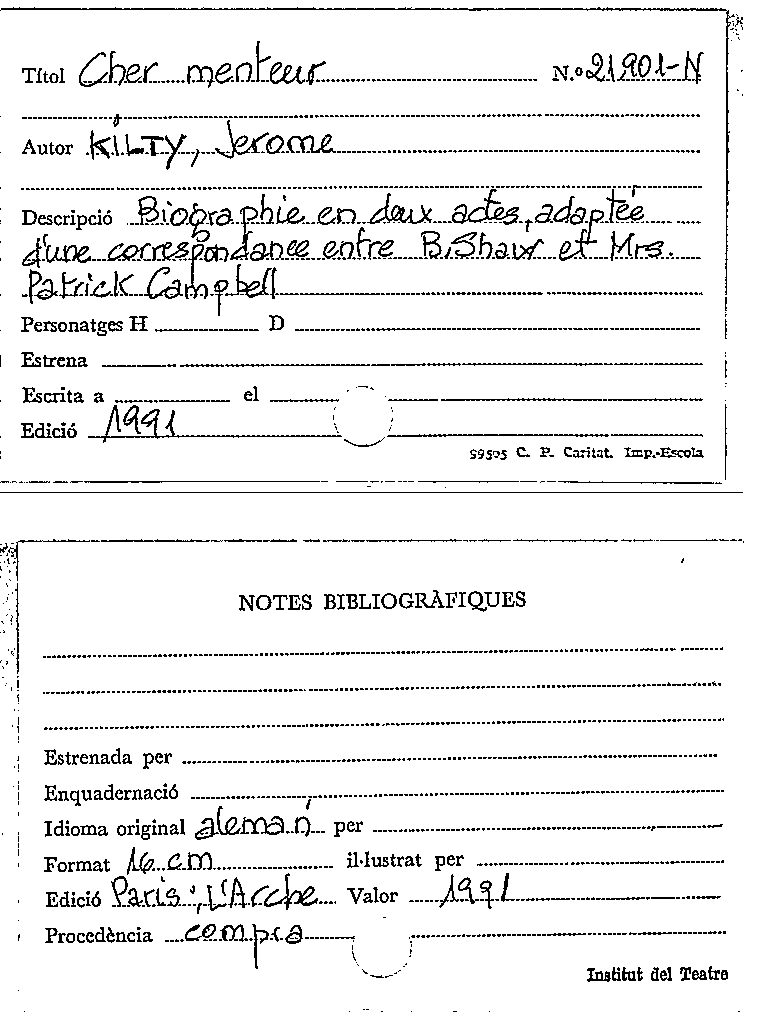 Títol Cher menteur N.º 21.901-N
Autor KILTY, Jerome
Descripció Biographie en deux actes, adaptée
d'une correspondance entre B. Shaw et Mrs.
Patrick Campbell
Personatges H D
Estrena
Escrita a el
Edició 1991
99505 C. P. Caritat. Imp.-Escola
NOTES BIBLIOGRÀFIQUES
Estrenada per
Enquadernació
Idioma original alemán per
Format 16 cm il·lustrat per
Edició Paris: L'Arche Valor 1991
Procedència compra
Institut del Teatre